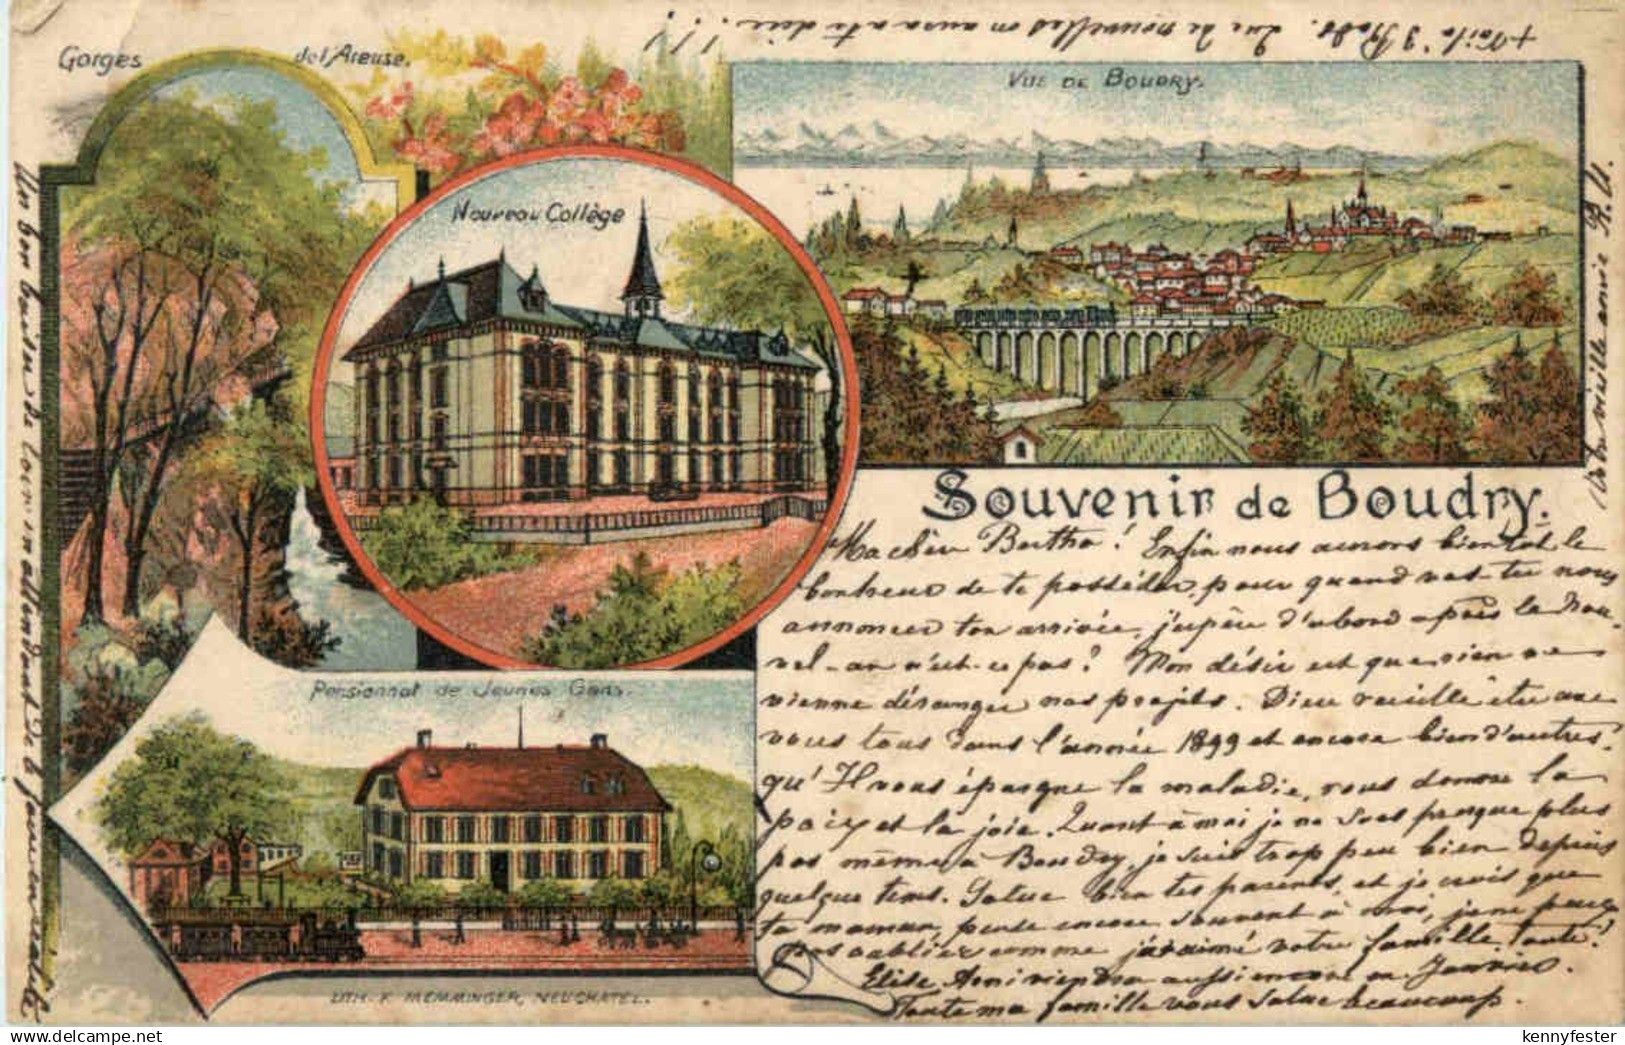 Gorges de l'Areuse.
VUE DE BOUDRY.
Nouveau Collège
Pensionnat de Jeunes Gens.
LITH. F. MEMMINGER, NEUCHATEL.
Souvenir de Boudry.
Ma chère Bertha! Enfin nous aurons bientôt le
bonheur de te posséder, pour quand vas-tu nous
annoncer ton arrivée, j'espère d'abord après le Nou-
vel-an n'est-ce pas? Mon désir est que rien ne
vienne déranger nos projets. Dieu veuille être avec
vous tous dans l'année 1899 et encore bien d'autres!
qu'Il vous épargne la maladie, vous donne la
paix et la joie. Quant à moi je ne sors presque plus
pas même à Boudry, je suis trop peu bien depuis
quelque tems. Salue bien tes parents, et je crois que
ta maman pense encore souvent à moi, je ne peux
pas oublier comme j'ai aimé votre famille, toute!
Elise viendra aussi encore en Janvier.
Toute ma famille vous salue beaucoup.
Ta vieille amie
+ Voilà de nouvelles on aura à te dire!!!
Un bon